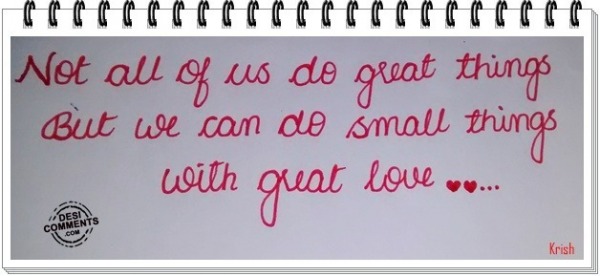 Not all of us do great things
But we can do small things
with great love ♥♥...
DESI
COMMENTS
.COM
Krish